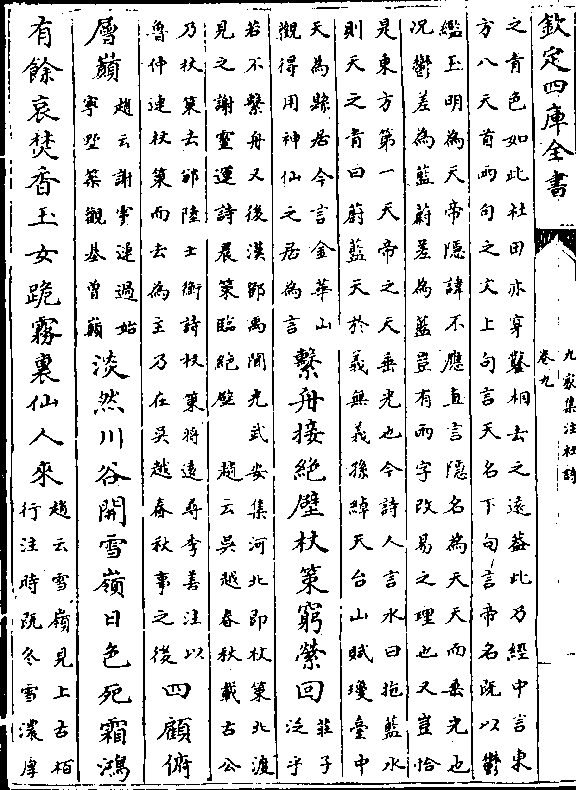 欽定四庫全書
九家集注杜詩
卷九
之青色如此杜田亦穿鑿相去之遠葢此乃經中言東
方八天首兩句之文上句言天名下句言帝名既以鬱
繿玉明為天帝隱諱不應直言隱名為天天而垂光也
況鬱差為藍蔚差為藍豈有兩字改易之理也又豈恰
是東方第一天帝之天垂光也今詩人言水曰挼藍水
則天之青曰蔚藍天於義無義孫綽天台山賦瓊臺中
天為縣居今言金華山
觀得用神仙之居為言
繫舟接絶壁杖策窮縈回
莊子
泛乎
若不繫舟又後漢鄧禹聞光武安集河北即杖策北渡
見之謝靈運詩晨策臨絶壁 趙云吳越春秋載古公
乃杖策去邠陸士衡詩杖策將遠尋李善注以
魯仲連杖策而去為主乃在吳越春秋事之後
四顧俯
層巔
趙云謝靈運過始
寧墅築觀基曾巔
淡然川谷開雪嶺日色死霜鴻
有餘哀焚香玉女跪霧裏仙人來
趙云雪嶺見上古栢
行注時既冬雪濃厚